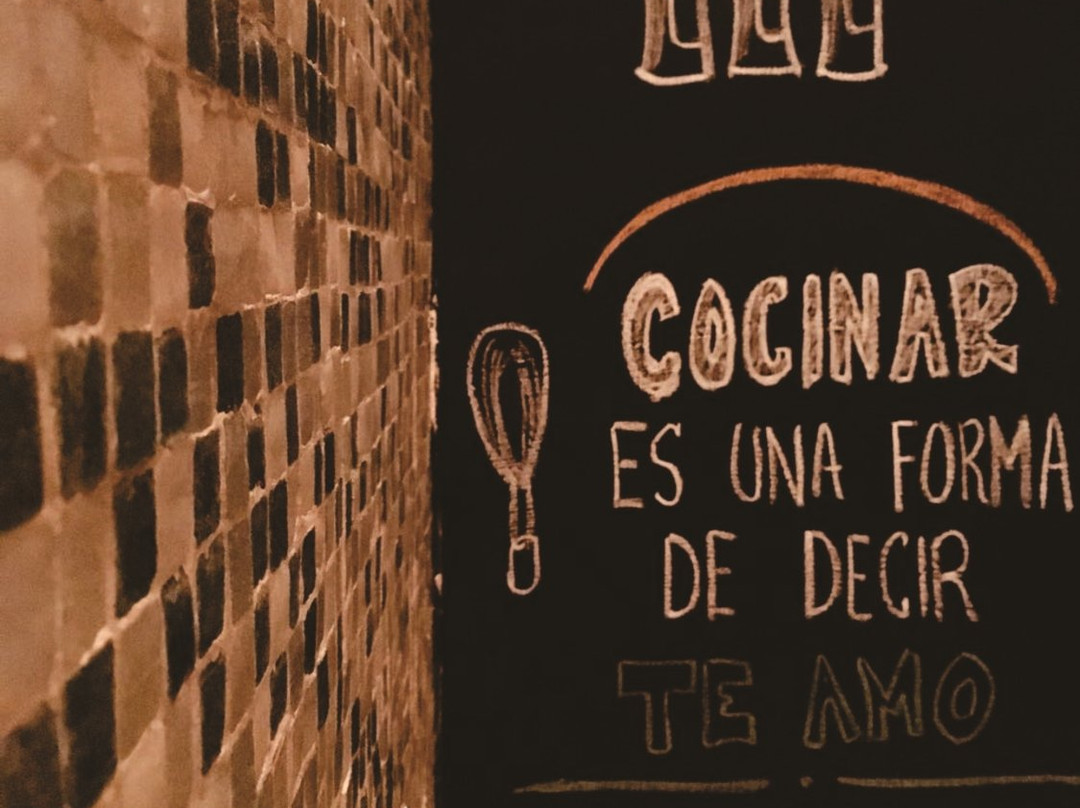 COCINAR
ES UNA FORMA
DE DECIR
TE AMO